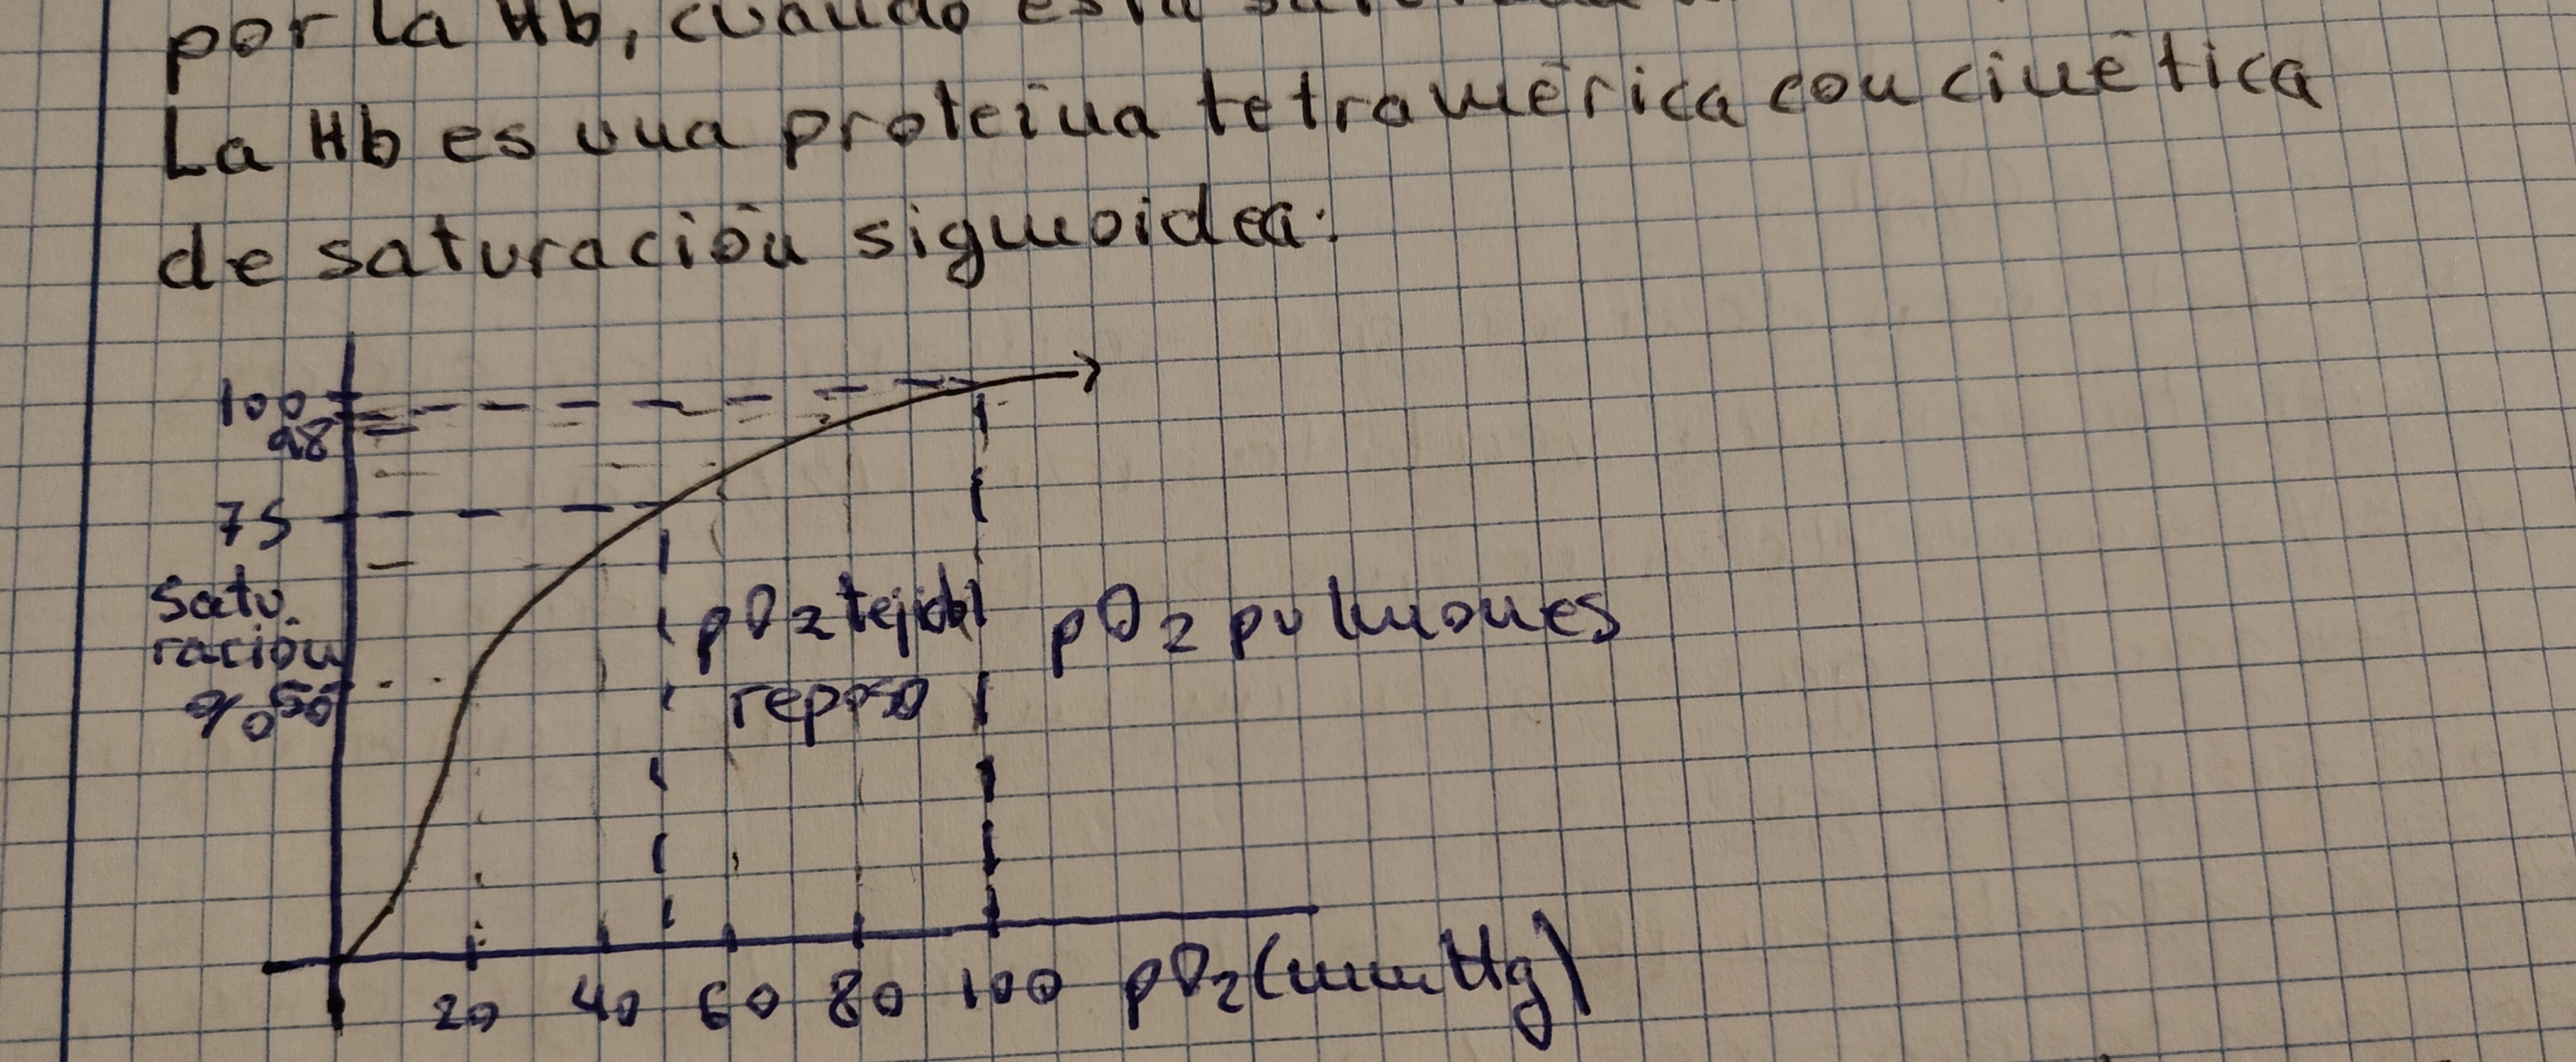 por la Hb, cuando está
La Hb es una proteína tetramérica con cinética
de saturación sigmoidea:
100
98
75
Satu.
ración
% 50
pO2 tejido
reposo
pO2 pulmones
20 40 60 80 100 pO2 (mmHg)